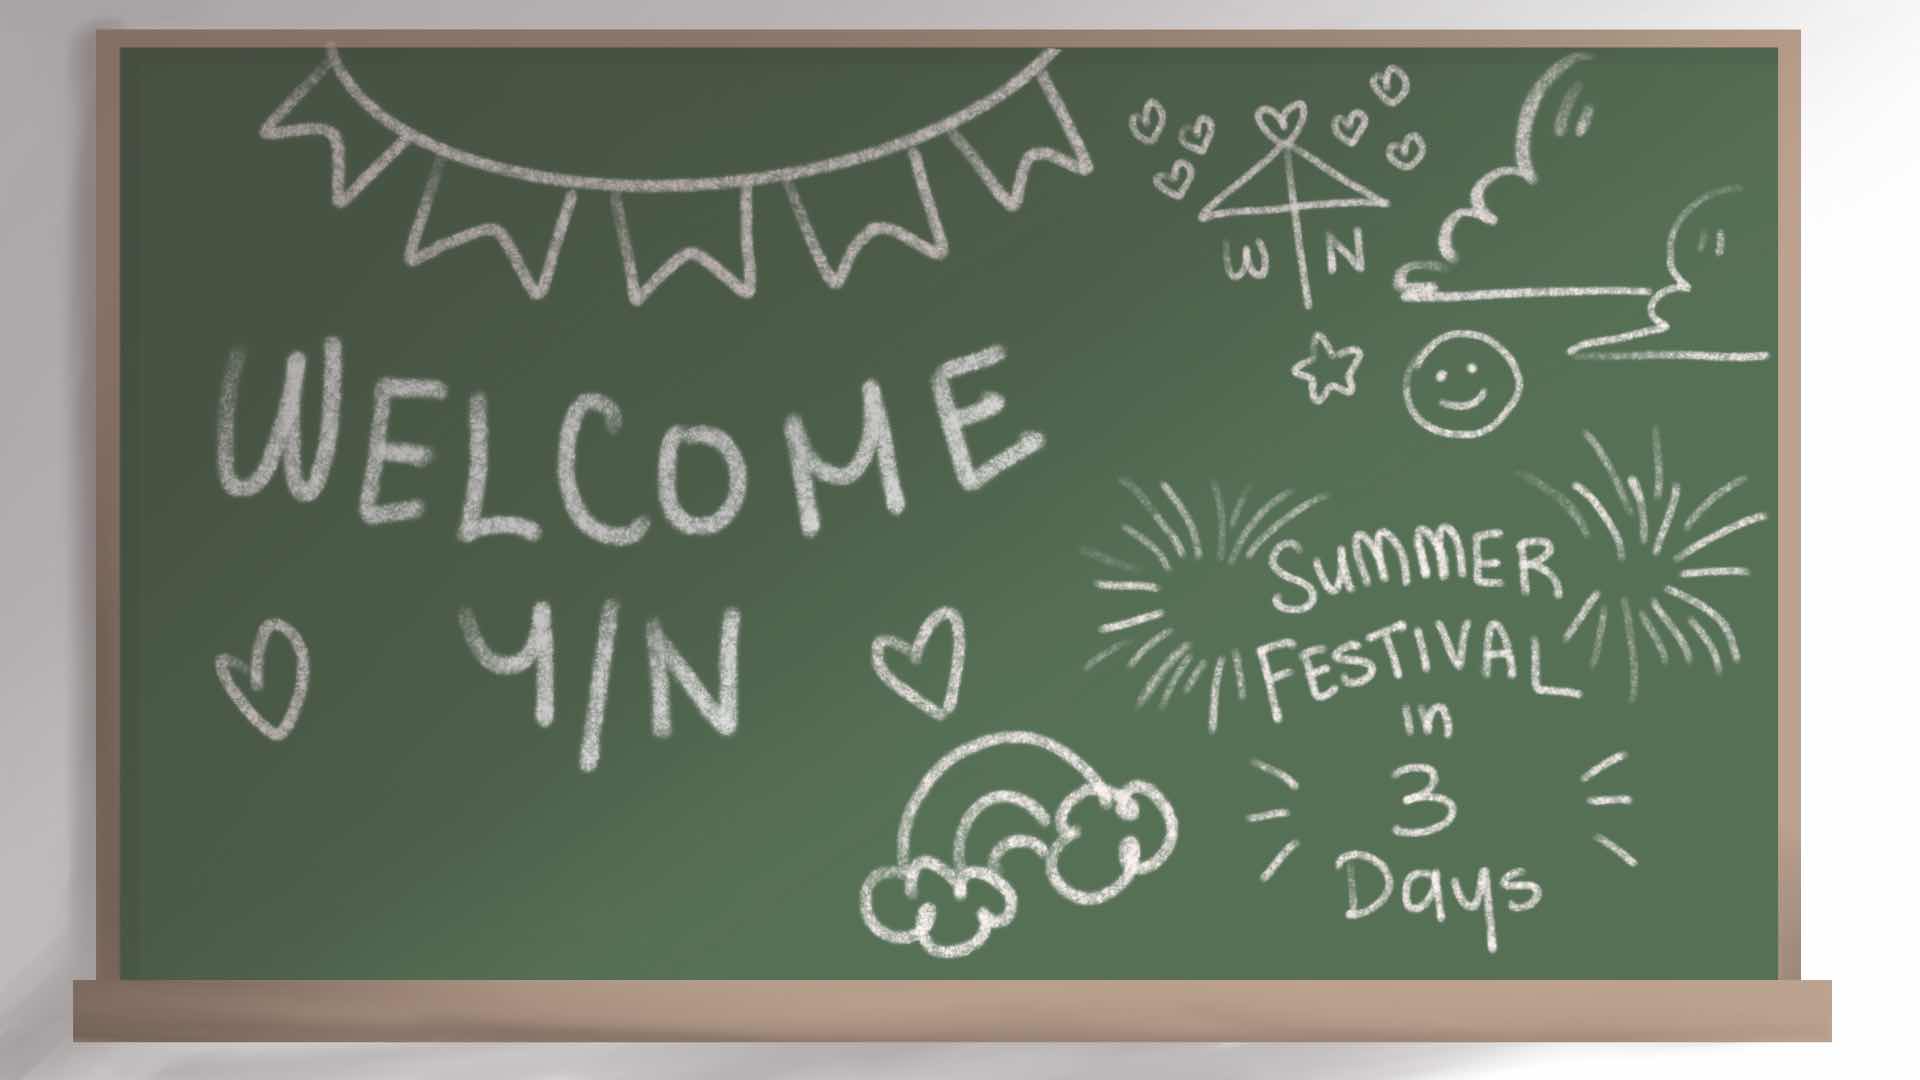 WELCOME
Y/N
W N
SUMMER
FESTIVAL
in
3
Days